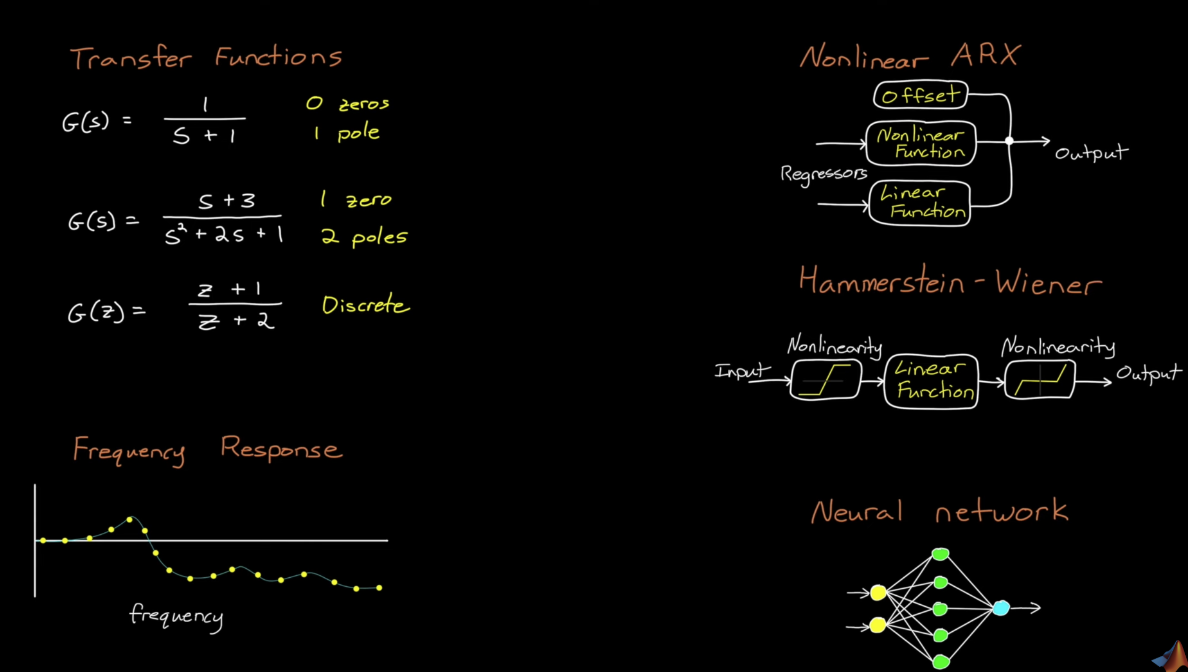 Transfer Functions
G(s) = 1 / (s + 1)
0 zeros
1 pole
G(s) = (s + 3) / (s² + 2s + 1)
1 zero
2 poles
G(z) = (z + 1) / (z + 2)
Discrete
Frequency Response
frequency
Nonlinear ARX
Offset
Nonlinear
Function
Regressors
Linear
Function
Output
Hammerstein - Wiener
Input
Nonlinearity
Linear
Function
Nonlinearity
Output
Neural network